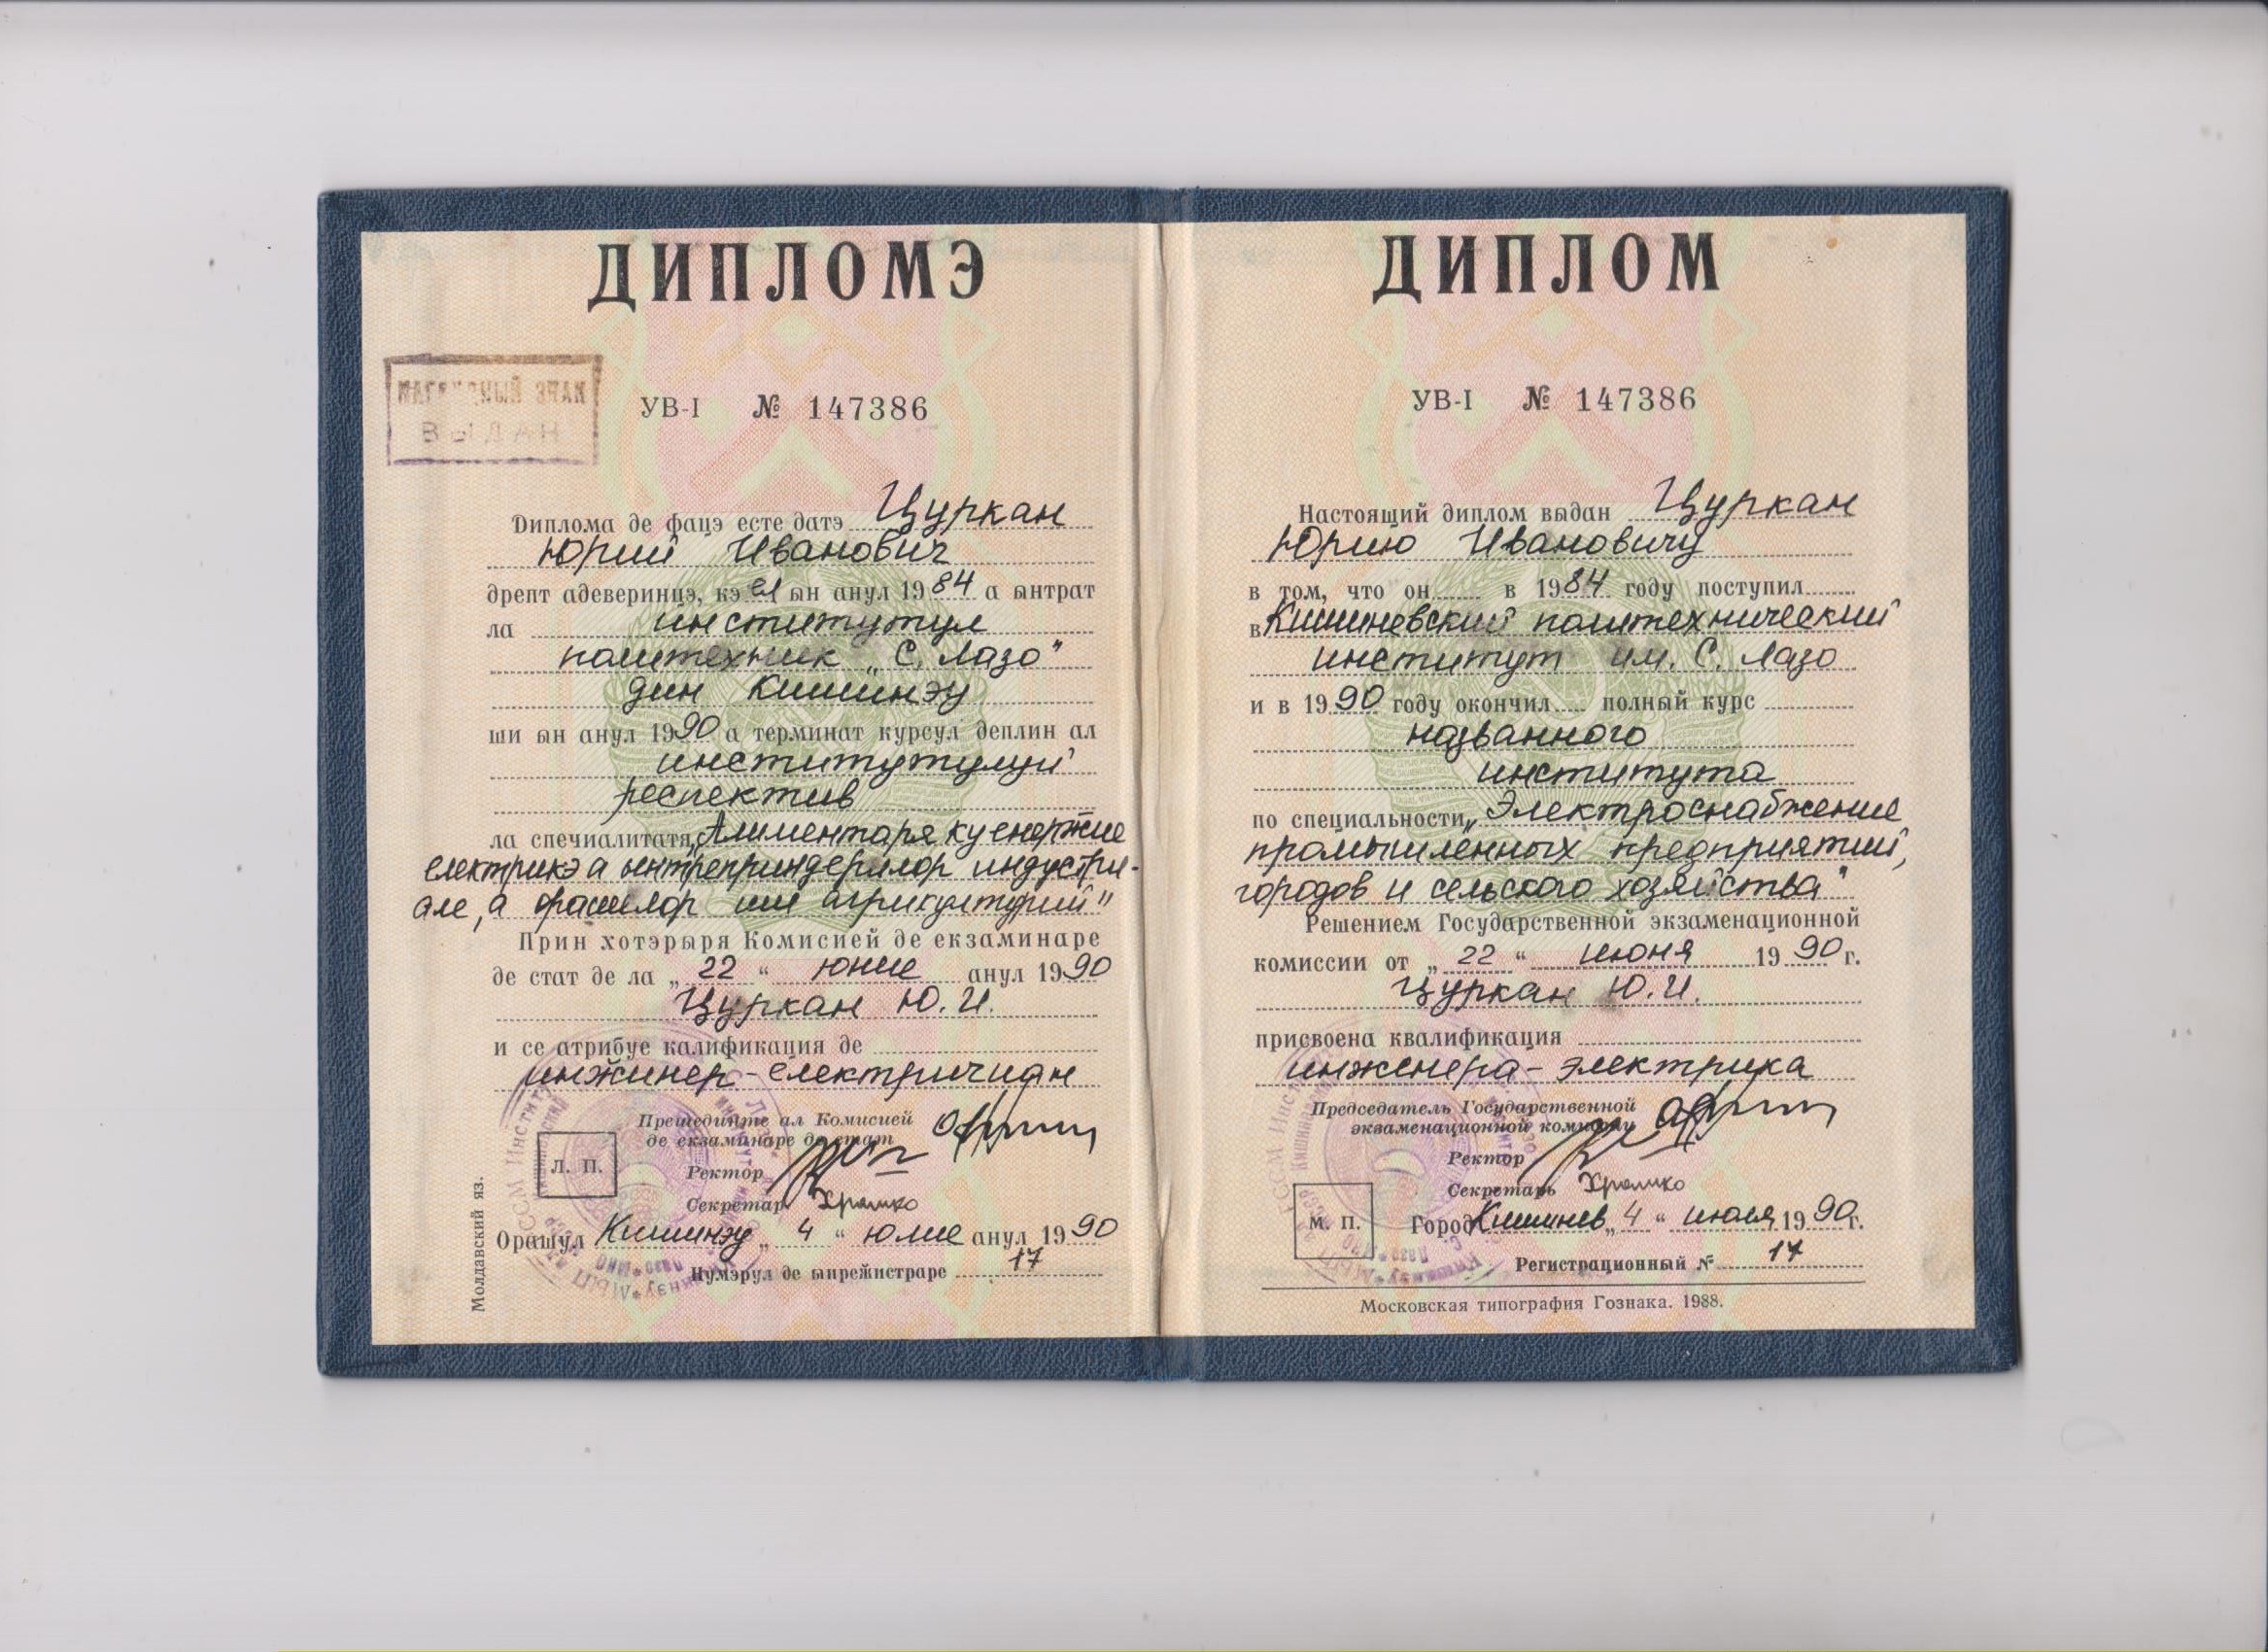 ДИПЛОМЭ
НАГРУДНЫЙ ЗНАК
ВЫДАН
УВ-I № 147386
Диплома де фацэ есте датэ Цуркан
Юрий Иванович
дрепт адеверинцэ, кэ ел ын анул 1984 а ынтрат
ла институтул
политехник „С. Лазо"
дин Кишинэу
ши ын анул 1990 а терминат курсул деплин ал
институтулуй
респектив
ла спечиалитатя „Алиментаря ку енержие
електрикэ а ынтреприндерилор индустри-
але, а орашелор ши агрикултурий"
Прин хотэрыря Комисией де екзаминаре
де стат де ла „22" юние анул 1990
Цуркан Ю.И.
и се атрибуе калификация де
инжинер-електричиан
Прешединте ал Комисией
де екзаминаре де стат
Л. П.
Ректор
Секретар Храмко
Орашул Кишинэу „4" юлие анул 1990
Нумэрул де ынрежистраре 17
Молдавский яз.
ДИПЛОМ
УВ-I № 147386
Настоящий диплом выдан Цуркан
Юрию Ивановичу
в том, что он в 1984 году поступил
в Кишиневский политехнический
институт им. С. Лазо
и в 1990 году окончил полный курс
названного
института
по специальности „Электроснабжение
промышленных предприятий,
городов и сельского хозяйства"
Решением Государственной экзаменационной
комиссии от „22" июня 1990 г.
Цуркан Ю.И.
присвоена квалификация
инженера-электрика
Председатель Государственной
экзаменационной комиссии
Ректор
Секретарь Храмко
М. П.
Город Кишинев „4" июля 1990 г.
Регистрационный № 17
Московская типография Гознака. 1988.